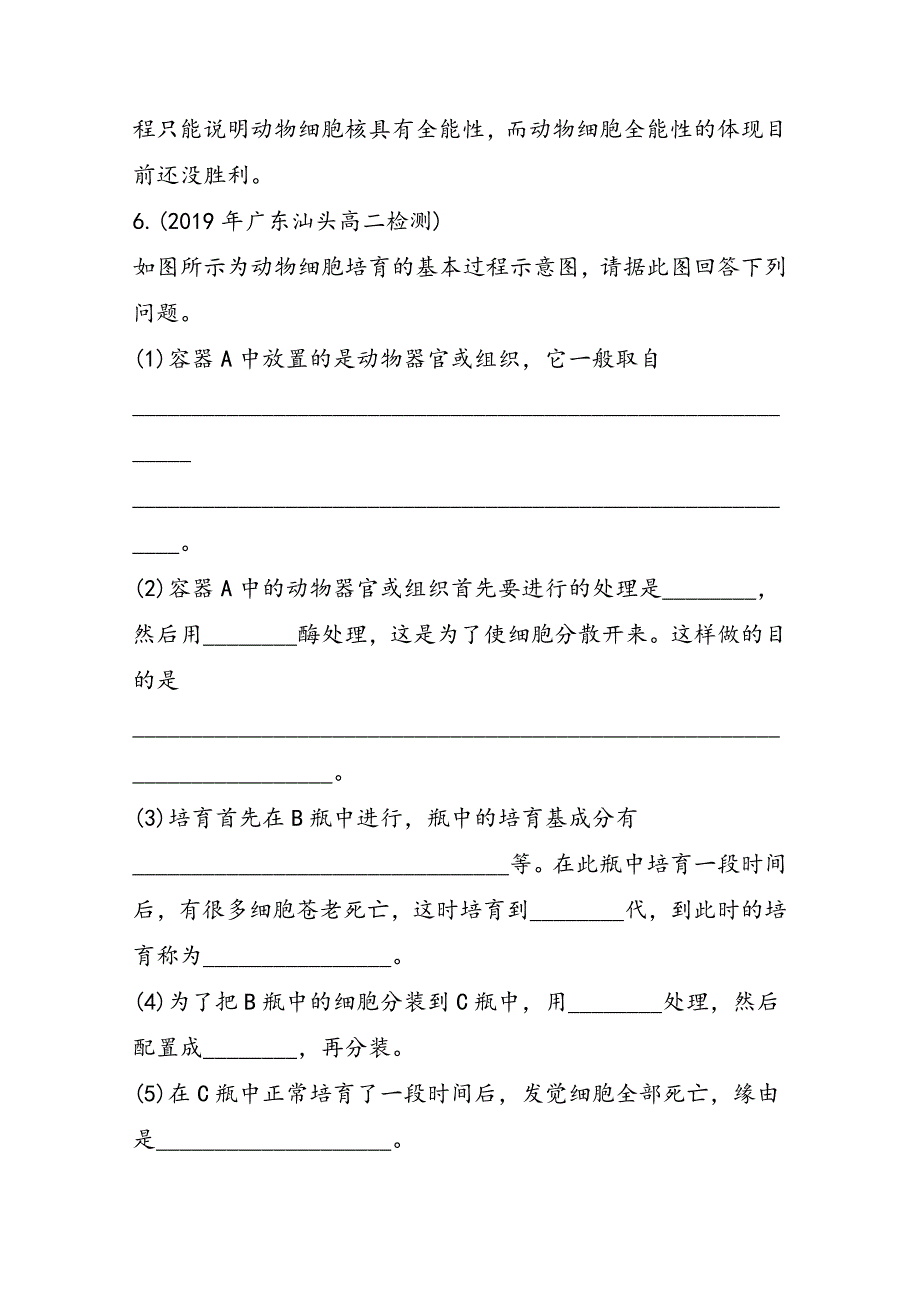 程只能说明动物细胞核具有全能性，而动物细胞全能性的体现目
前还没胜利。
6.(2019 年广东汕头高二检测)
如图所示为动物细胞培育的基本过程示意图，请据此图回答下列
问题。
(1)容器 A 中放置的是动物器官或组织，它一般取自
_______________________________________________________
_____
_______________________________________________________
____。
(2)容器 A 中的动物器官或组织首先要进行的处理是________，
然后用________酶处理，这是为了使细胞分散开来。这样做的目
的是
_______________________________________________________
_________________。
(3)培育首先在 B 瓶中进行，瓶中的培育基成分有
________________________________等。在此瓶中培育一段时间
后，有很多细胞苍老死亡，这时培育到________代，到此时的培
育称为________________。
(4)为了把 B 瓶中的细胞分装到 C 瓶中，用________处理，然后
配置成________，再分装。
(5)在 C 瓶中正常培育了一段时间后，发觉细胞全部死亡，缘由
是____________________。